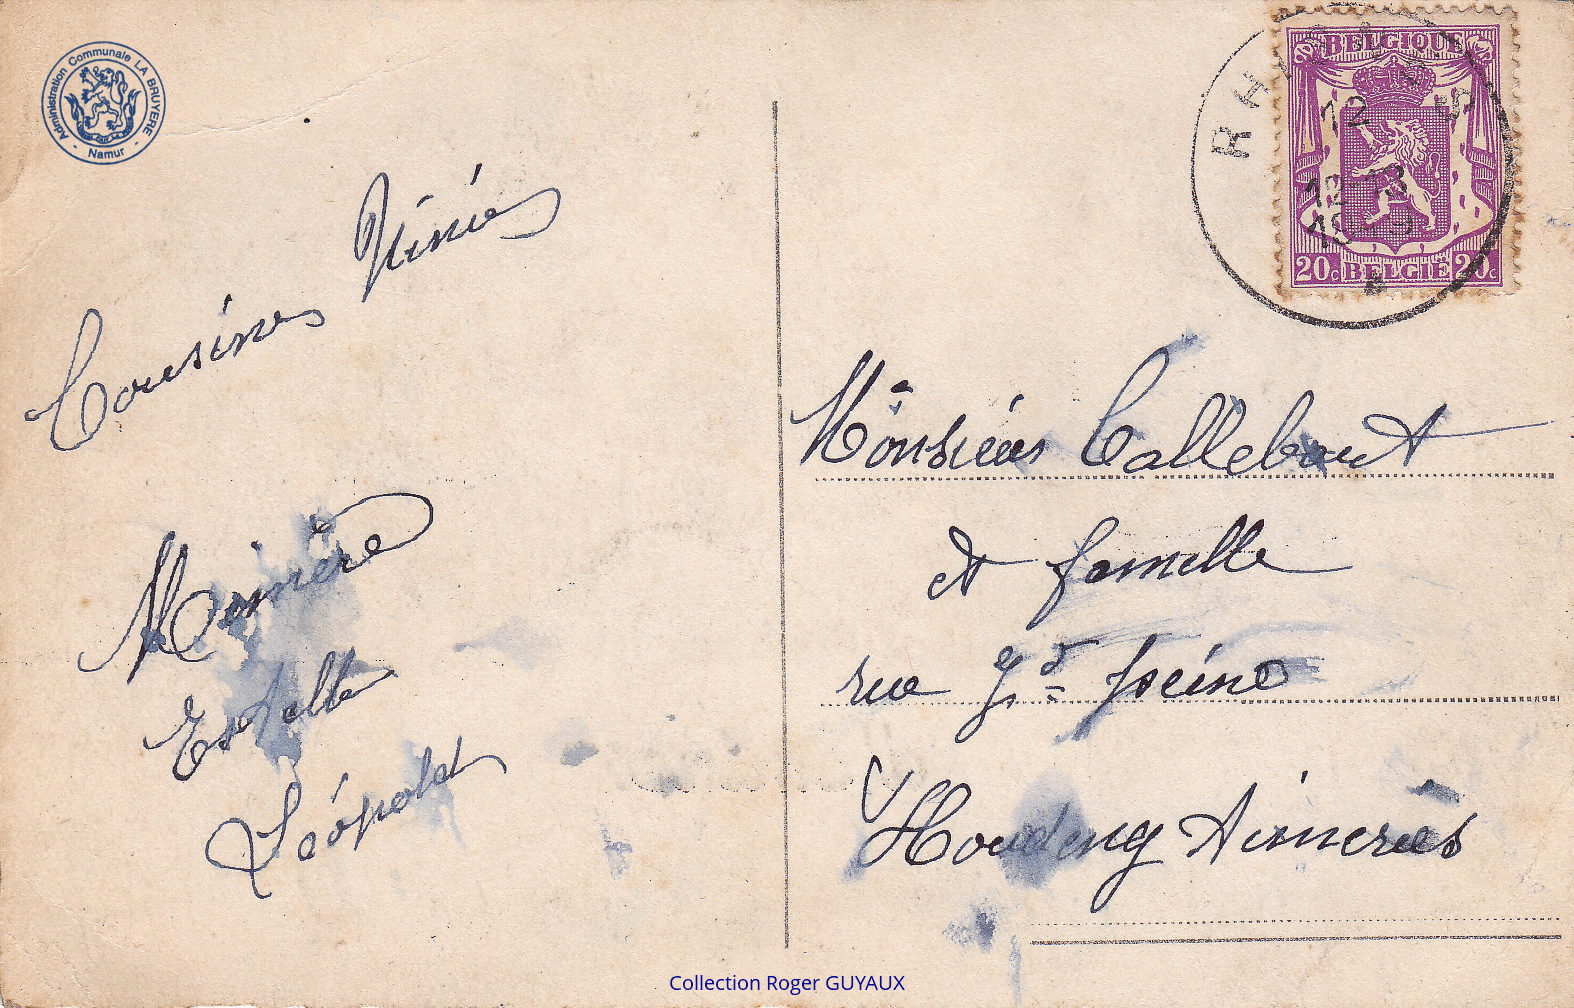 Administration Communale LA BRUYERE
- Namur -
Cousines Ninie
Estelle
Léopold
BELGIQUE
RH
12
12-13
20c BELGIË 20c
Monsieur Callebaut
et famille
rue
Houdeng Aimeries
Collection Roger GUYAUX